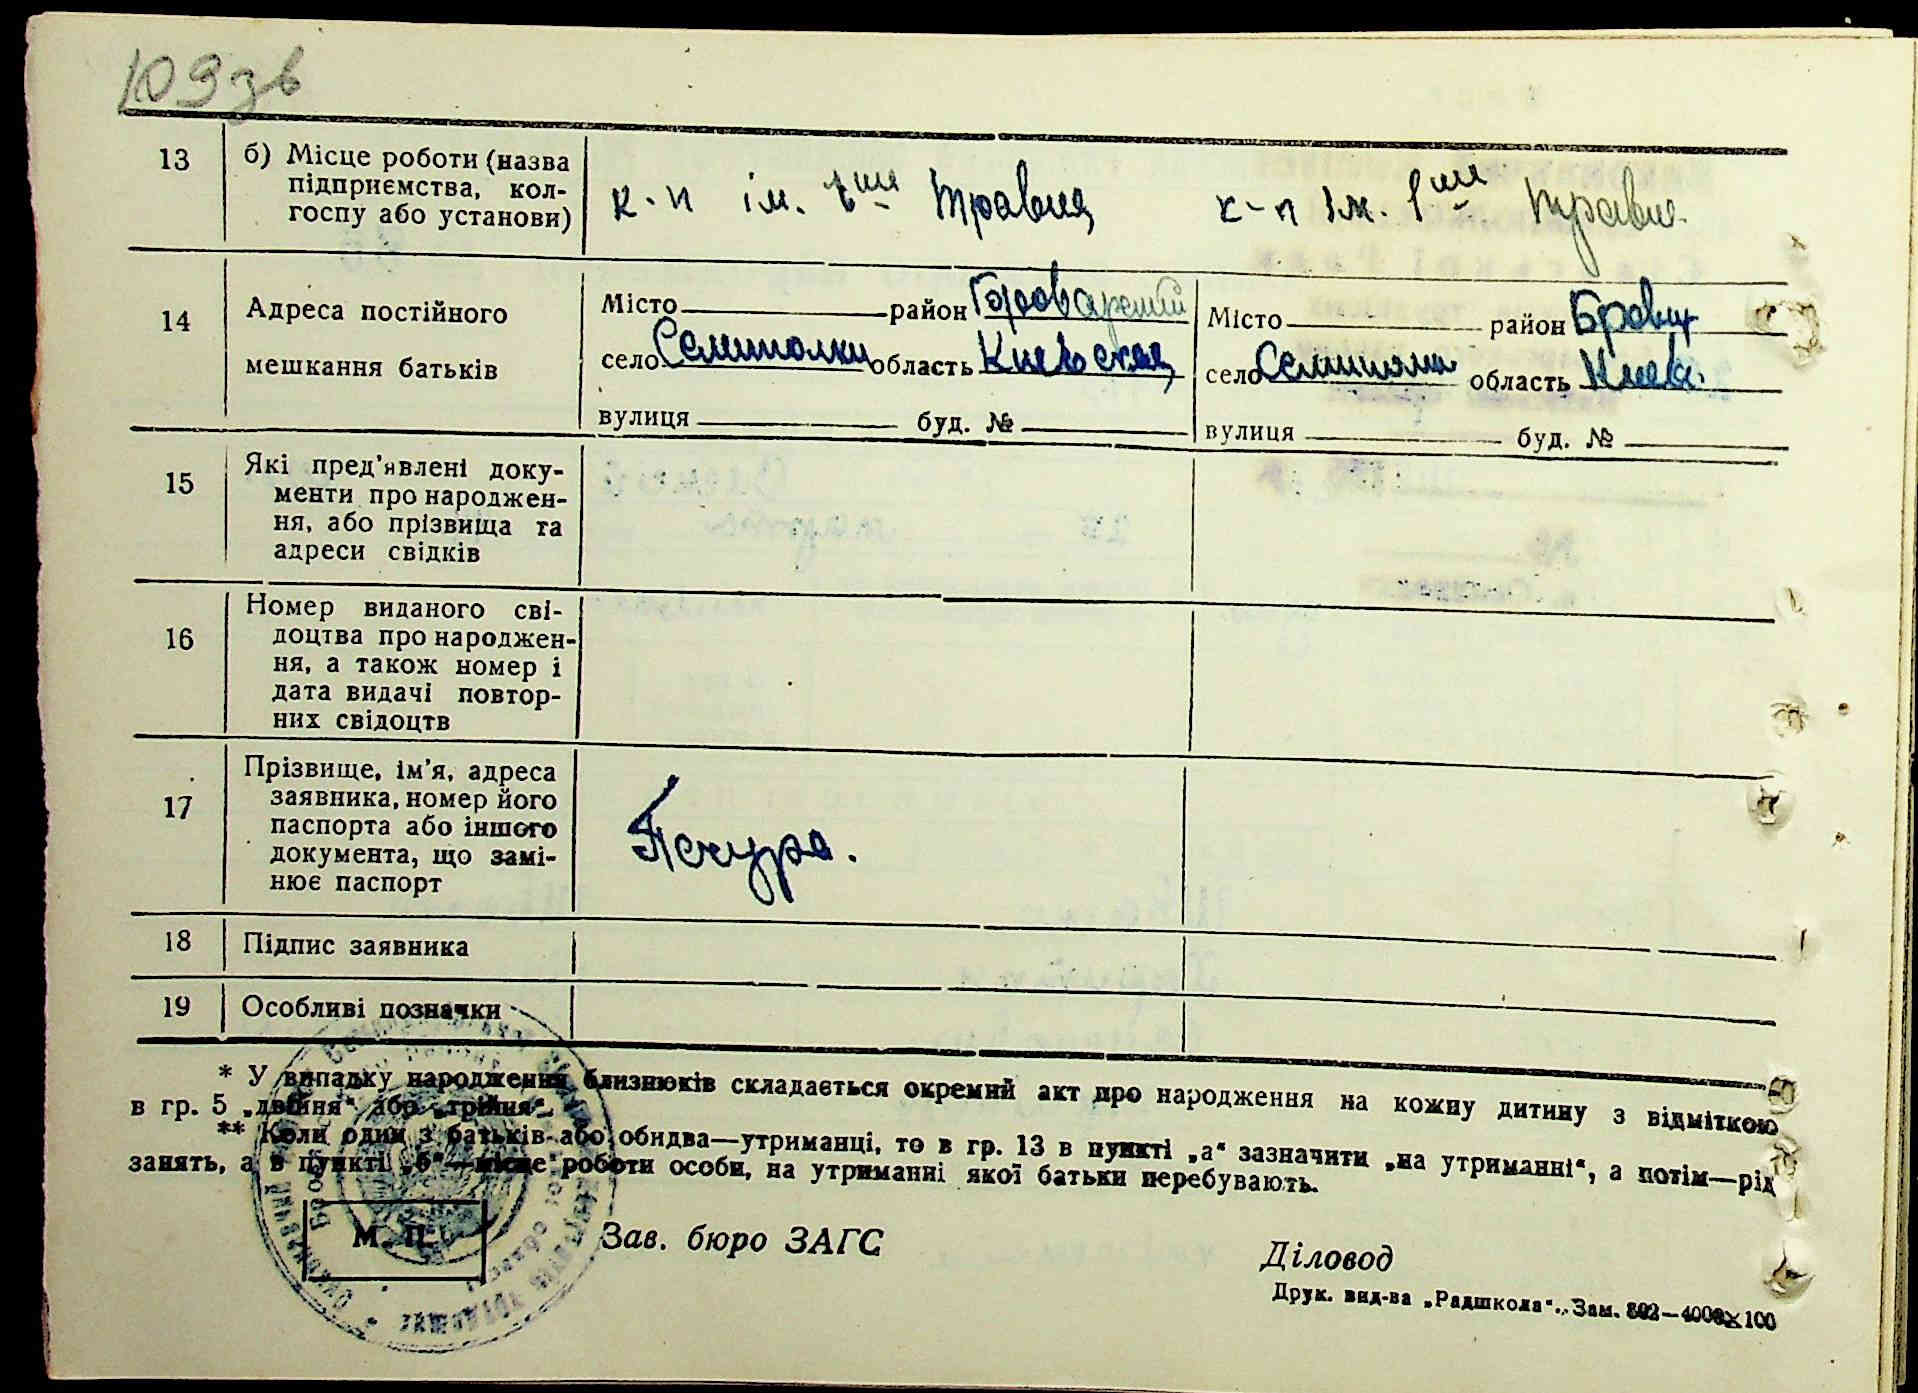 109 зв
13 б) Місце роботи (назва
підприємства, кол-
госпу або установи)
к-п ім. 1ш Травня к-п ім. 1ш травня.
14 Адреса постійного
мешкання батьків
Місто район Броварський
село Семиполки область Киевская
вулиця буд. №
Місто район Бровар
село Семиполки область Киевск.
вулиця буд. №
15 Які пред'явлені доку-
менти про народжен-
ня, або прізвища та
адреси свідків
16 Номер виданого сві-
доцтва про народжен-
ня, а також номер і
дата видачі повтор-
них свідоцтв
17 Прізвище, ім'я, адреса
заявника, номер його
паспорта або іншого
документа, що замі-
нює паспорт
Печура.
18 Підпис заявника
19 Особливі позначки
* У випадку народження близнюків складається окремий акт про народження на кожну дитину з відміткою
в гр. 5 „двійня“ або „трійня“.
** Коли один з батьків або обидва—утриманці, то в гр. 13 в пункті „а“ зазначити „на утриманні“, а потім—рід
занять, а в пункті „б“—місце роботи особи, на утриманні якої батьки перебувають.
М. П.
Зав. бюро ЗАГС
Діловод
Друк. вид-ва „Радшкола“. Зам. 802—4000×100